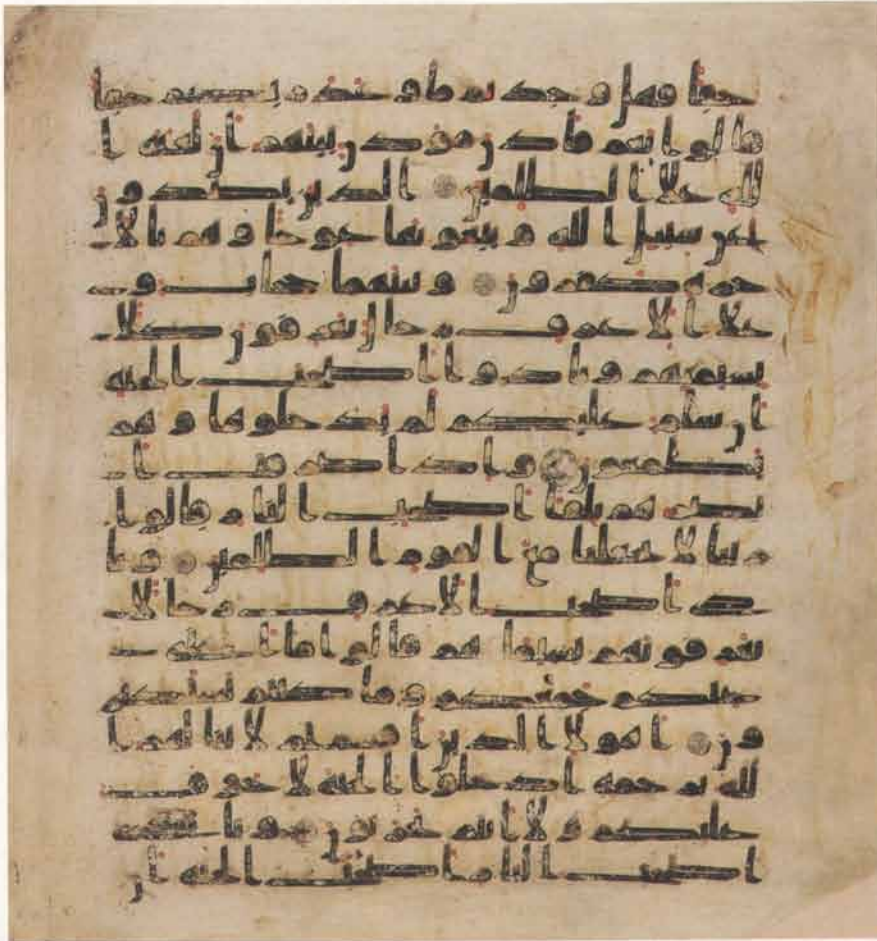 حقا فهل وجدتم ما وعد ربكم حقا
قالوا نعم فاذن موذن بينهم ان لعنه ا
لله على الظلمين الذين يصدون
عن سبيل الله ويبغونها عوجا وهم بالا
خره كفرون وبينهما حجاب و
على الاعراف رجال يعرفون كلا
بسيمهم ونادوا اصحب الجنه
ان سلم عليكم لم يدخلوها وهم
يطمعون واذا صرفت ا
بصرهم تلقا اصحب النار قالوا
ربنا لا تجعلنا مع القوم الظلمين ونا
دى اصحب الاعراف رجالا
يعرفونهم بسيمهم قالوا ما اغنى
عنكم جمعكم وما كنتم تستكبر
ون اهولا الذين اقسمتم لا ينالهم ا
لله برحمه ادخلوا الجنه لا خوف
عليكم ولا انتم تحزنون ونادى
اصحب النار اصحب الجنه ان